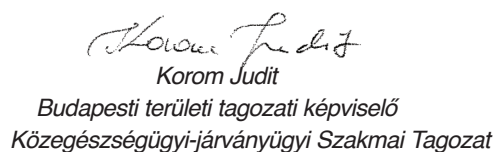 Korom Judit
Korom Judit
Budapesti területi tagozati képviselő
Közegészségügyi-járványügyi Szakmai Tagozat